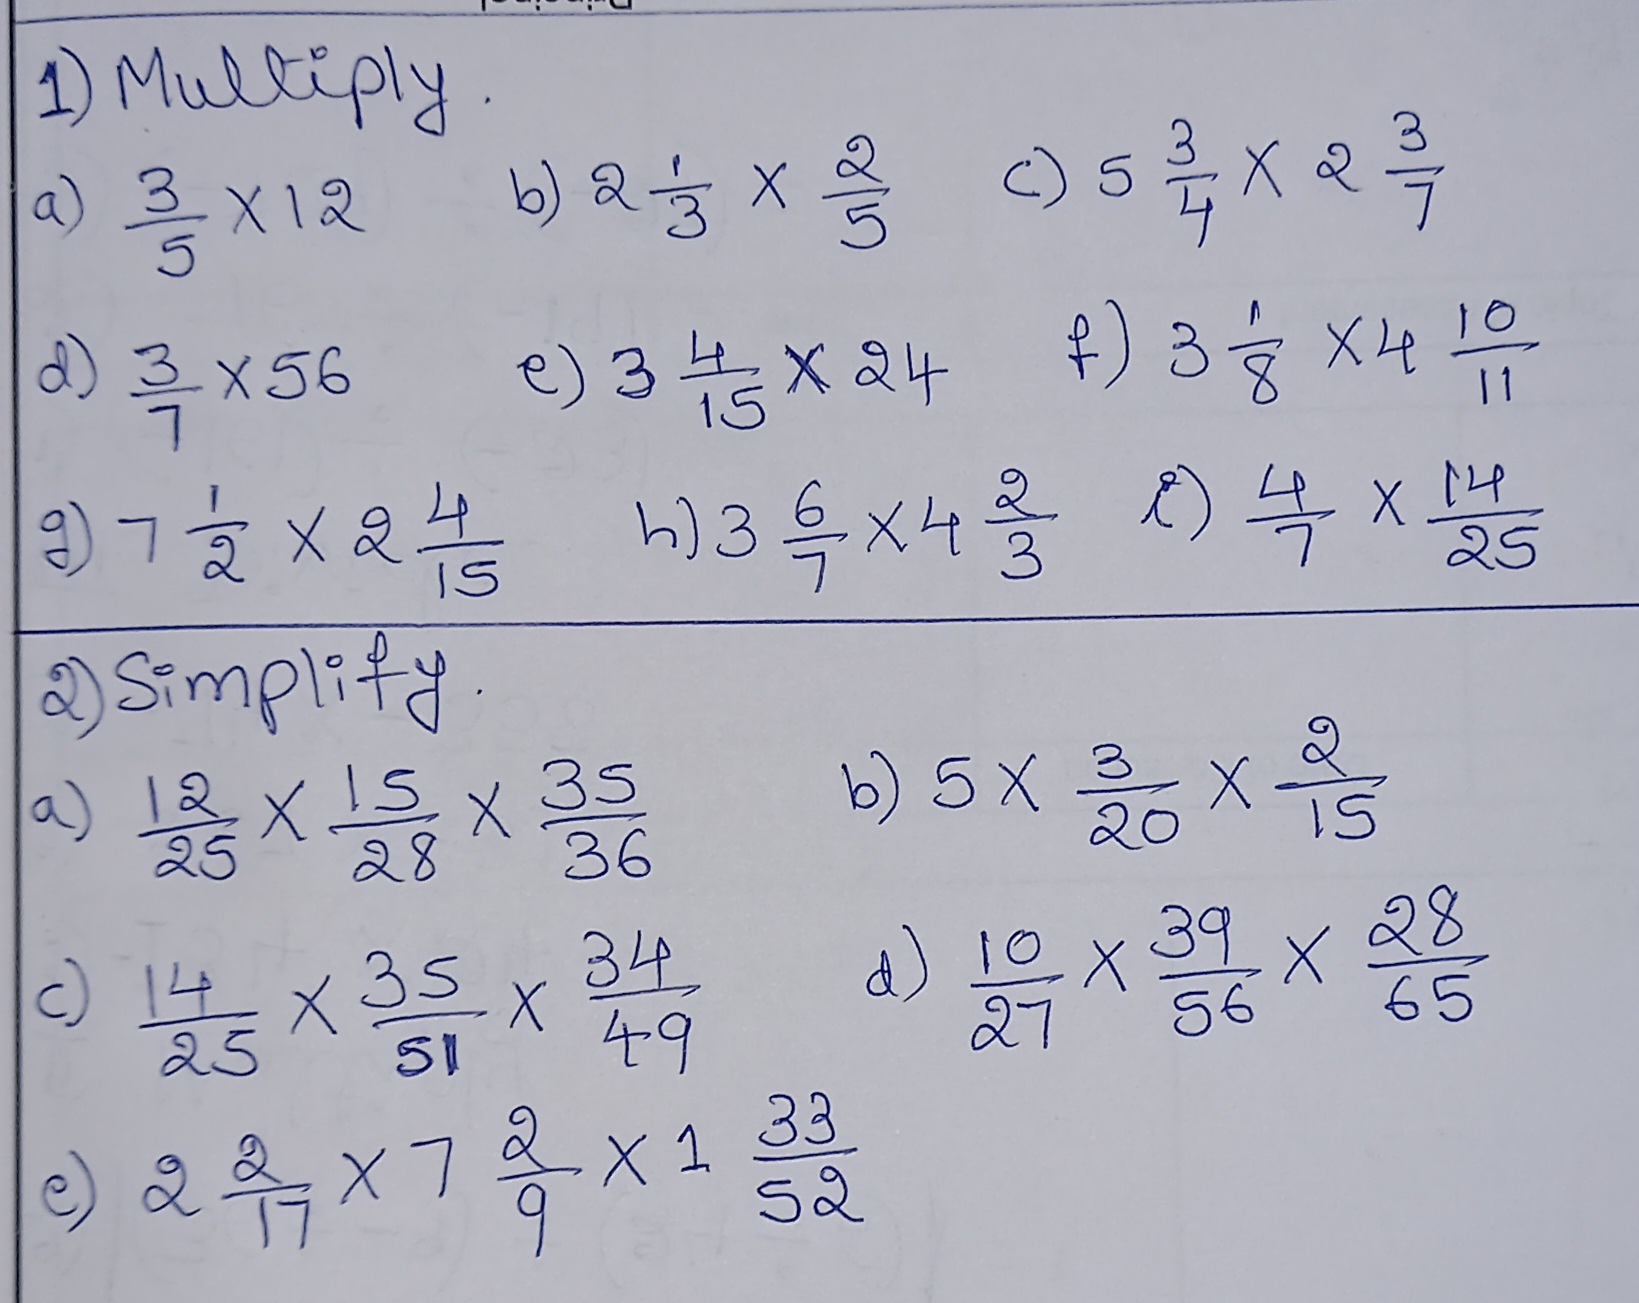 Principal
1) Multiply.
a) 3/5 × 12 b) 2 1/3 × 2/5 c) 5 3/4 × 2 3/7
d) 3/7 × 56 e) 3 4/15 × 24 f) 3 1/8 × 4 10/11
g) 7 1/2 × 2 4/15 h) 3 6/7 × 4 2/3 i) 4/7 × 14/25
2) Simplify.
a) 12/25 × 15/28 × 35/36 b) 5 × 3/20 × 2/15
c) 14/25 × 35/51 × 34/49 d) 10/27 × 39/56 × 28/65
e) 2 2/17 × 7 2/9 × 1 33/52